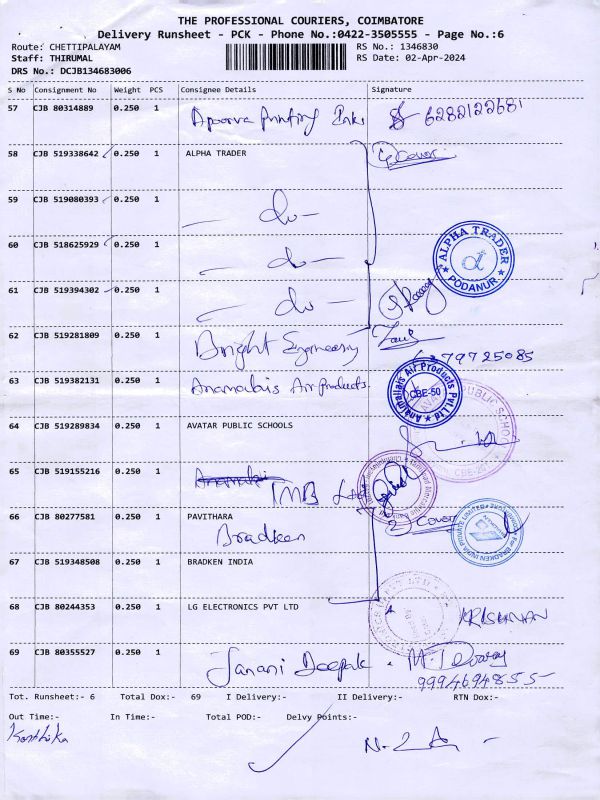 THE PROFESSIONAL COURIERS, COIMBATORE
Delivery Runsheet - PCK - Phone No.:0422-3505555 - Page No.:6
Route: CHETTIPALAYAM RS No.: 1346830
Staff: THIRUMAL RS Date: 02-Apr-2024
DRS No.: DCJB134683006
S No Consignment No Weight PCS Consignee Details Signature
57 CJB 80314889 0.250 1 Apoorva Printing Inks 6282122681
58 CJB 519338642 0.250 1 ALPHA TRADER 4 Cover
59 CJB 519080393 0.250 1 - do -
60 CJB 518625929 0.250 1 - do -
ALPHA TRADER PODANUR
61 CJB 519394302 0.250 1 - do -
62 CJB 519281809 0.250 1 Bright Engineering 6379725085
63 CJB 519382131 0.250 1 Anamalais Air Products
Anamallais Air Products Pvt.Ltd CBE-50
64 CJB 519289834 0.250 1 AVATAR PUBLIC SCHOOLS
PUBLIC SCHOOL
65 CJB 519155216 0.250 1 TMB Ltd
66 CJB 80277581 0.250 1 PAVITHARA 2 Cover
Bradken
For BRADKEN INDIA PRIVATE LIMITED
67 CJB 519348508 0.250 1 BRADKEN INDIA
68 CJB 80244353 0.250 1 LG ELECTRONICS PVT LTD KRISHNAN
69 CJB 80355527 0.250 1 Janani Deepak
9994694855
Tot. Runsheet:- 6 Total Dox:- 69 I Delivery:- II Delivery:- RTN Dox:-
Out Time:- In Time:- Total POD:- Delvy Points:-
Karthika